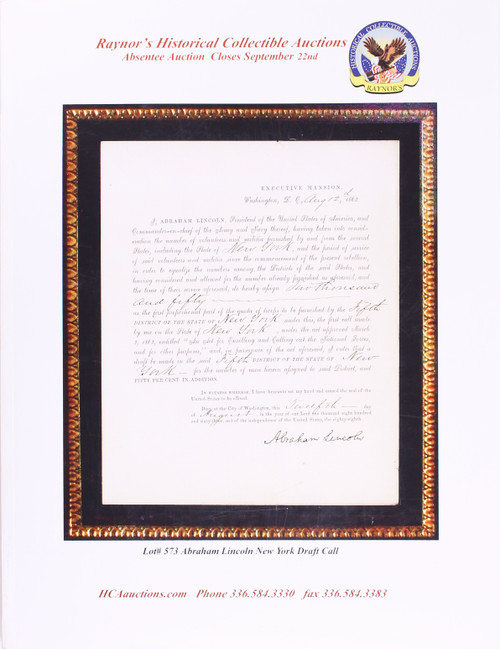 Raynor's Historical Collectible Auctions
Absentee Auction Closes September 22nd
HISTORICAL COLLECTIBLE AUCTIONS
RAYNOR'S
EXECUTIVE MANSION,
Washington, D. C. Aug 12th, 1863.
I, ABRAHAM LINCOLN, President of the United States of America, and
Commander-in-chief of the Army and Navy thereof, having taken into consid-
eration the number of volunteers and militia furnished by and from the several
States, including the State of New York, and the period of service
of said volunteers and militia since the commencement of the present rebellion,
in order to equalize the numbers among the Districts of the said States, and
having considered and allowed for the number already furnished as aforesaid, and
the time of their service aforesaid, do hereby assign Two thousand
and fifty
as the first proportional part of the quota of troops to be furnished by the Fifth
DISTRICT OF THE STATE OF New York under this, the first call made
by me on the State of New York, under the act approved March
3, 1863, entitled "An Act for Enrolling and Calling out the National Forces,
and for other purposes," and, in pursuance of the act aforesaid, I order that a
draft be made in the said Fifth DISTRICT OF THE STATE OF New
York for the number of men herein assigned to said District, and
FIFTY PER CENT. IN ADDITION.
IN WITNESS WHEREOF, I have hereunto set my hand and caused the seal of the
United States to be affixed.
Done at the City of Washington, this Twelfth day
of August, in the year of our Lord one thousand eight hundred
and sixty-three, and of the independence of the United States, the eighty-eighth.
Abraham Lincoln
Lot# 573 Abraham Lincoln New York Draft Call
HCAauctions.com Phone 336.584.3330 fax 336.584.3383